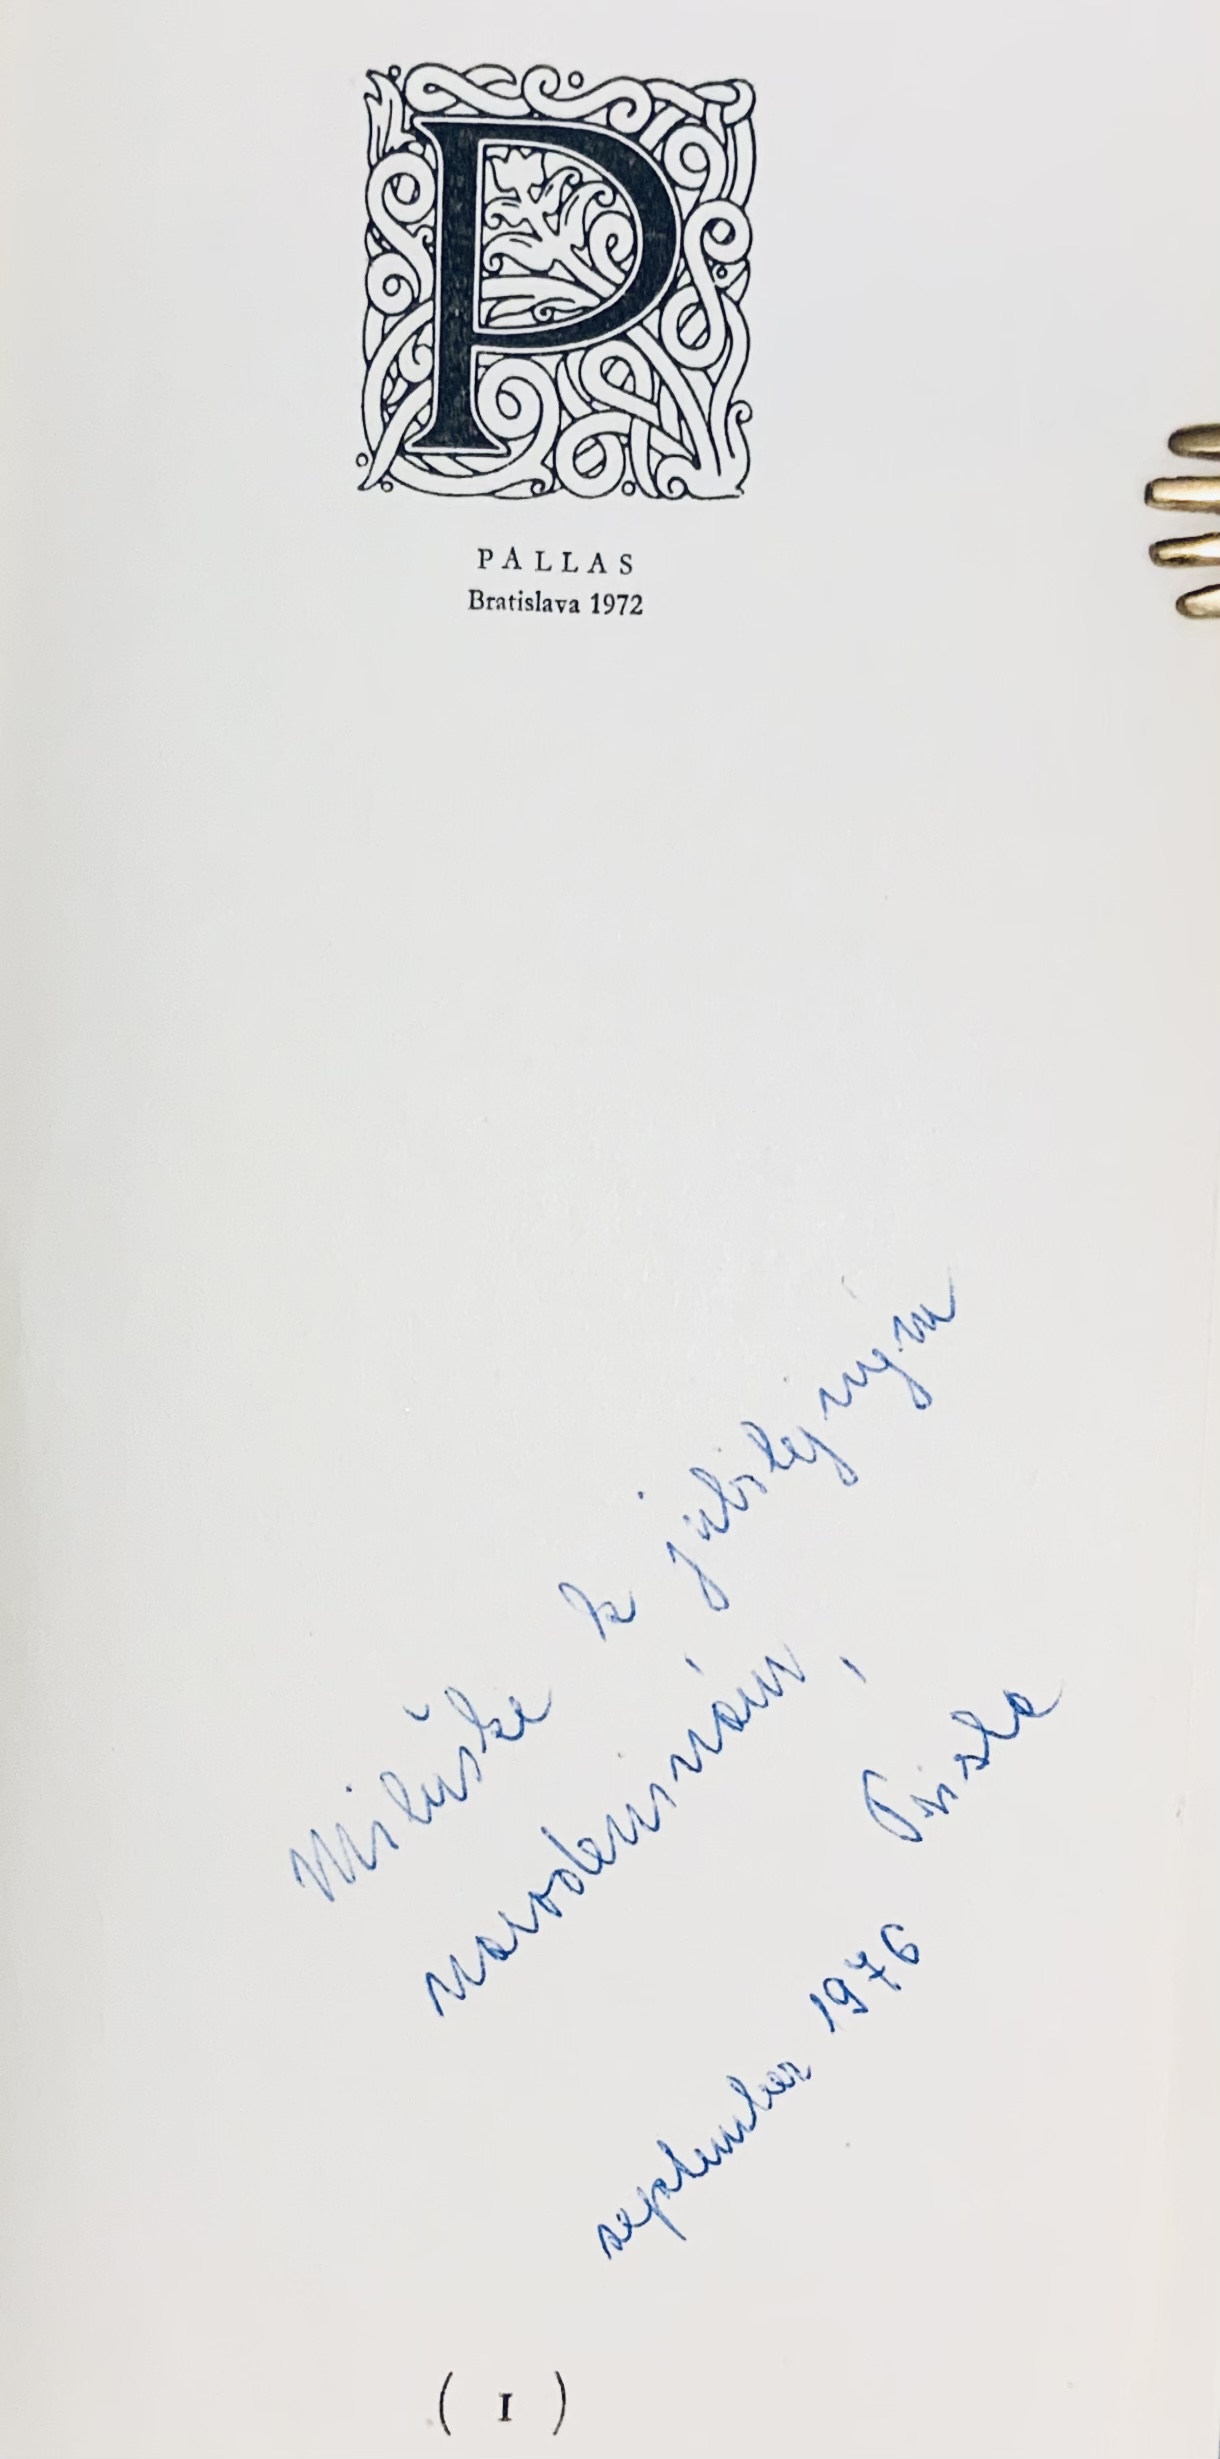 P
PALLAS
Bratislava 1972
Miluške k jubilejným
narodeninám,
september 1976
( I )